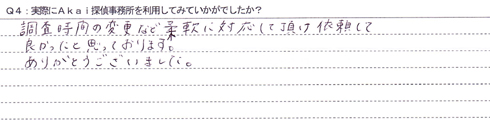 Q4：実際にAkai探偵事務所を利用してみていかがでしたか？
調査時間の変更など柔軟に対応して頂け依頼して
良かったと思っております。
ありがとうございました。